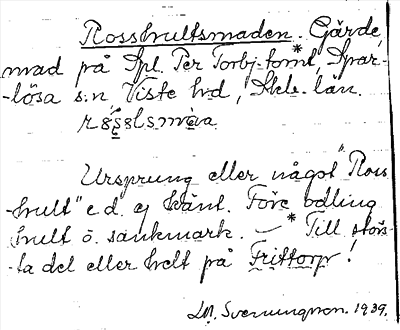 Rosshultsmaden. Gärde,
mad på Spl. Per Torbj. tomt*, Spar-
-lösa s:n Viste hd, Skbs. län.

Ursprung eller något "Ross
-hult" e.d. ej känt. Före odling
hult o. sankmark. — * Till störs-
-ta del eller helt på Frittorp!
D.A. Svenungsson. 1939.